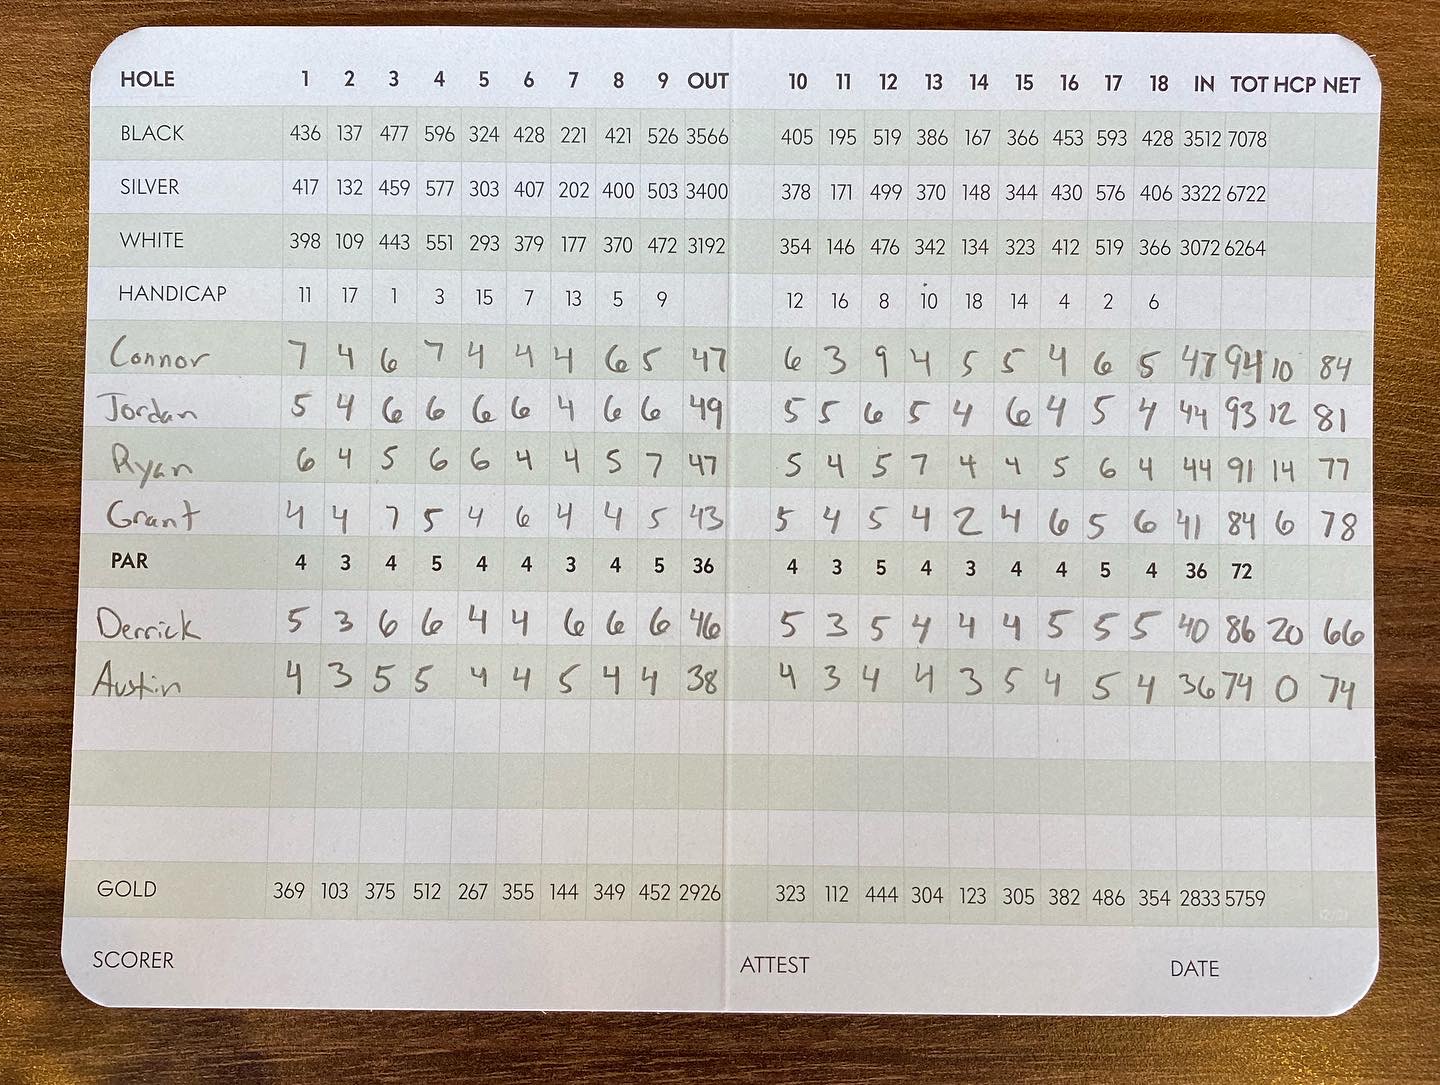 HOLE 1 2 3 4 5 6 7 8 9 OUT 10 11 12 13 14 15 16 17 18 IN TOT HCP NET
BLACK 436 137 477 596 324 428 221 421 526 3566 405 195 519 386 167 366 453 593 428 3512 7078
SILVER 417 132 459 577 303 407 202 400 503 3400 378 171 499 370 148 344 430 576 406 3322 6722
WHITE 398 109 443 551 293 379 177 370 472 3192 354 146 476 342 134 323 412 519 366 3072 6264
HANDICAP 11 17 1 3 15 7 13 5 9 12 16 8 10 18 14 4 2 6
Connor 7 4 6 7 4 4 4 6 5 47 6 3 9 4 5 5 4 6 5 47 94 10 84
Jordan 5 4 6 6 6 6 4 6 6 49 5 5 6 5 4 6 4 5 4 44 93 12 81
Ryan 6 4 5 6 6 4 4 5 7 47 5 4 5 7 4 4 5 6 4 44 91 14 77
Grant 4 4 7 5 4 6 4 4 5 43 5 4 5 4 2 4 6 5 6 41 84 6 78
PAR 4 3 4 5 4 4 3 4 5 36 4 3 5 4 3 4 4 5 4 36 72
Derrick 5 3 6 6 4 4 6 6 6 46 5 3 5 4 4 4 5 5 5 40 86 20 66
Austin 4 3 5 5 4 4 5 4 4 38 4 3 4 4 3 5 4 5 4 36 74 0 74
GOLD 369 103 375 512 267 355 144 349 452 2926 323 112 444 304 123 305 382 486 354 2833 5759
SCORER ATTEST DATE